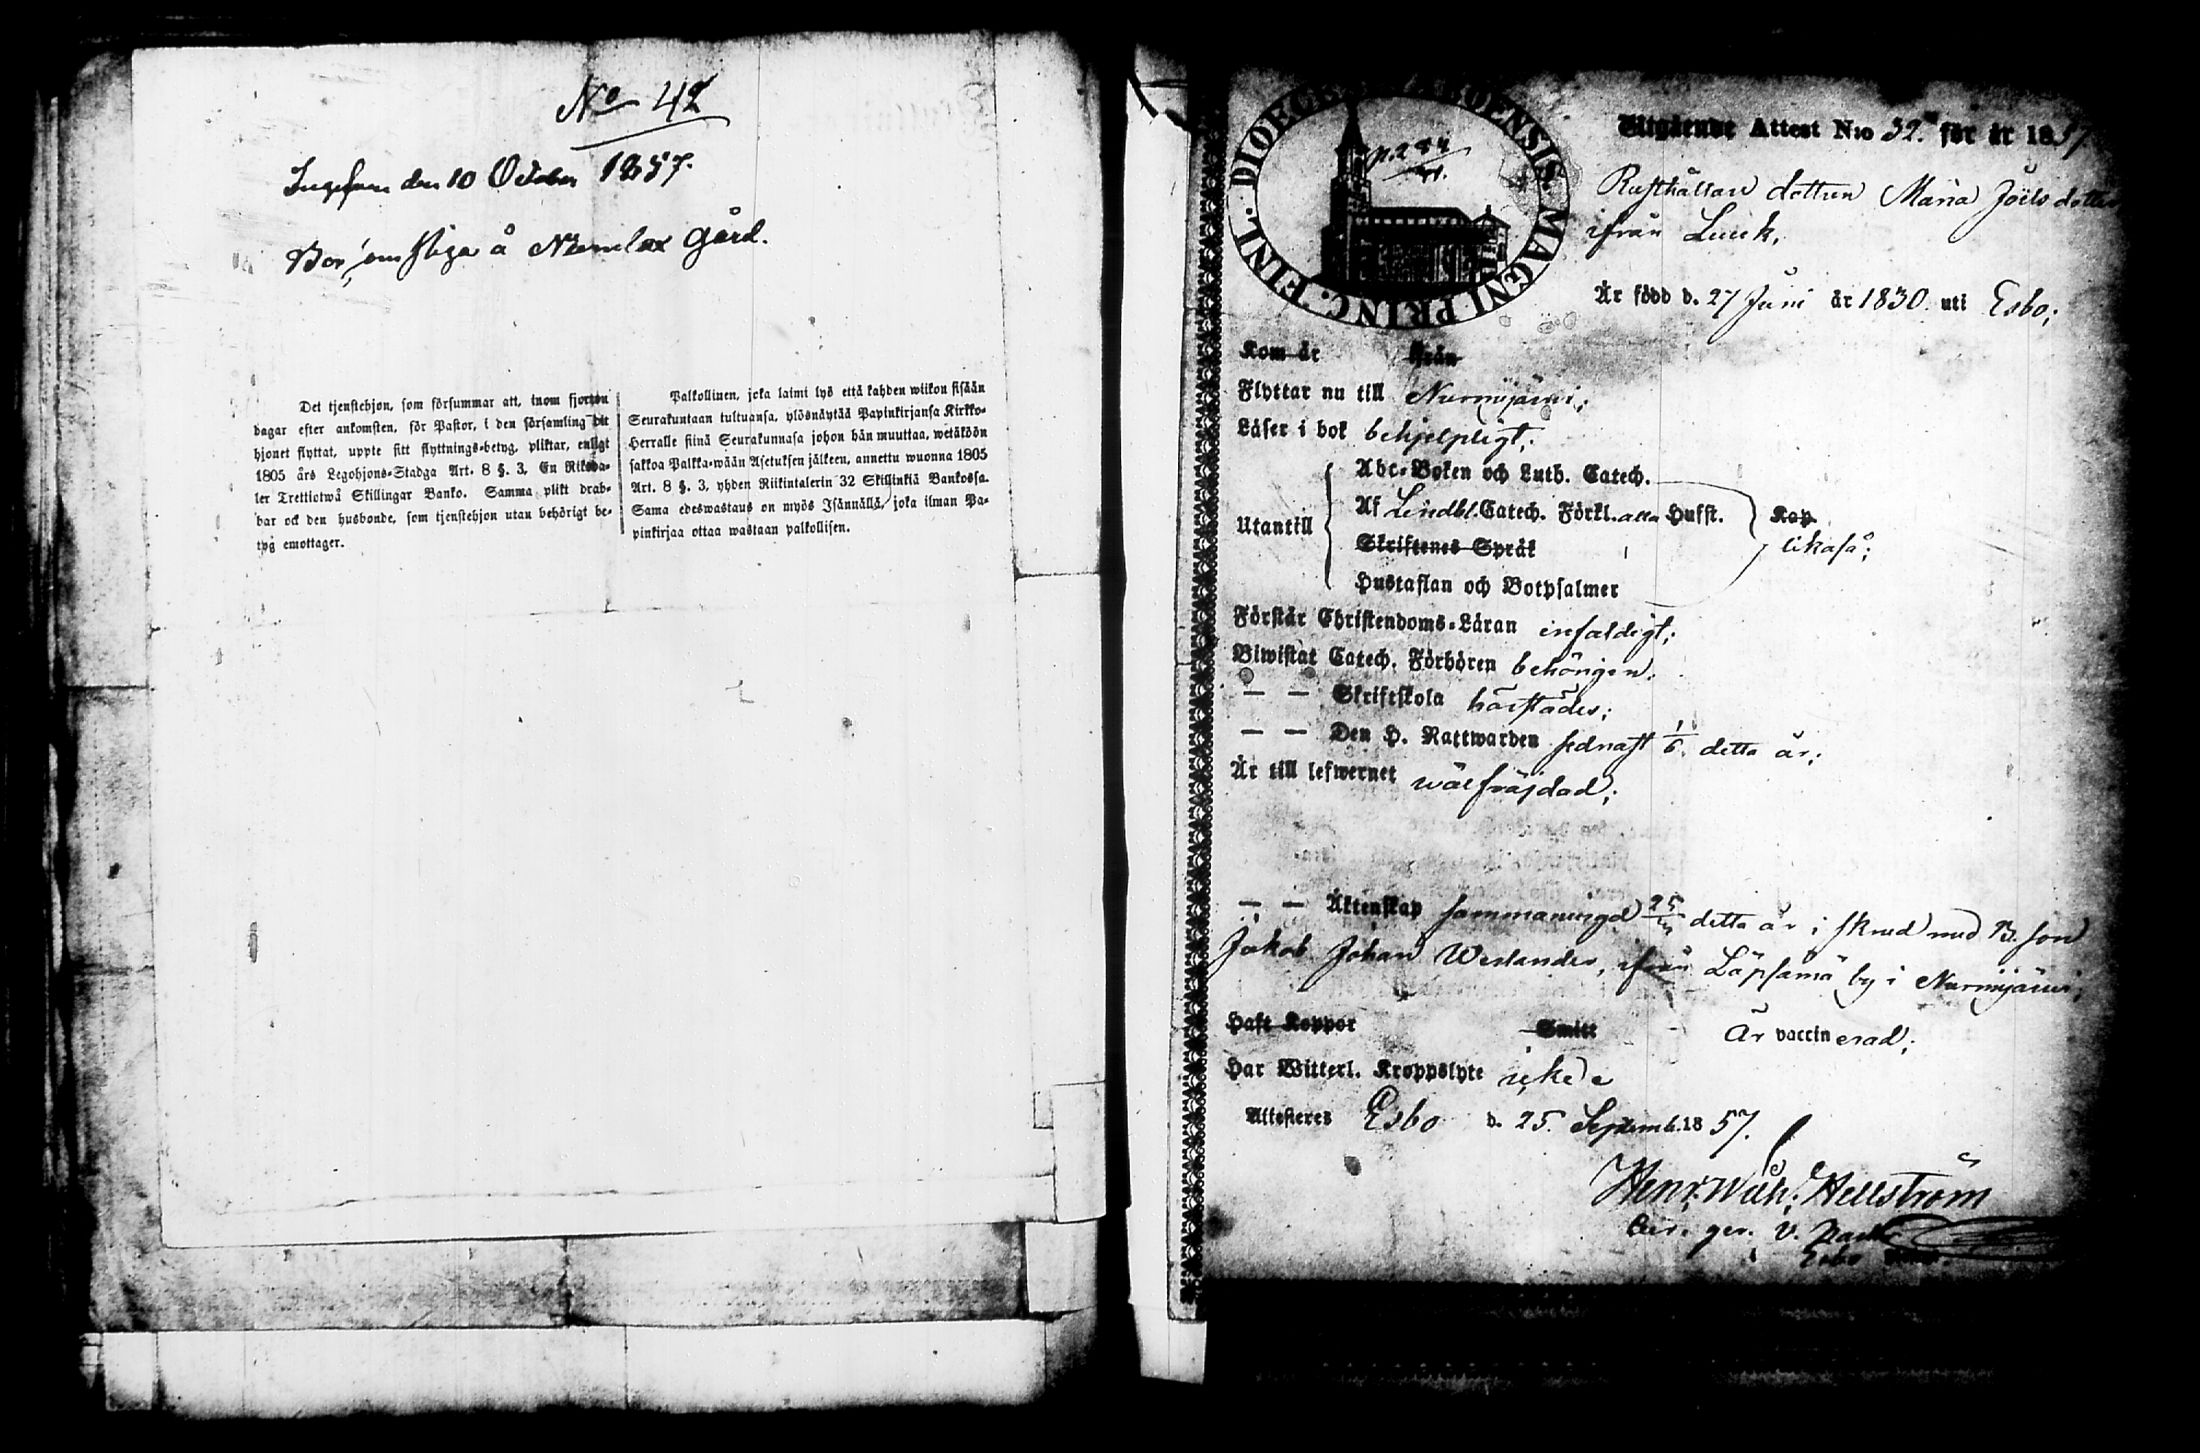 No 42
den 10 October 1857.
Bor å gård.
Det tjenstehjon, som försummar att, inom fjorton
dagar efter ankomsten, för Pastor, i den församling dit
hjonet flyttat, uppte sitt flyttnings-betyg, pliktar, enligt
1805 års Legohjons-Stadga Art. 8 §. 3. En Riksda-
ler Trettiotwå Skillingar Banko. Samma plikt drab-
bar ock den husbonde, som tjenstehjon utan behörigt be-
tyg emottager.
Palkollinen, joka laimi lyö että kahden wiikon sisään
Seurakuntaan tultuansa, ylösnäytää Papinkirjansa Kirkko-
Herralle siinä Seurakunnasa johon hän muuttaa, wetäköön
sakkoa Palkka-wään Asetuksen jälkeen, annettu wuonna 1805
Art. 8 §. 3, yhden Riikintalerin 32 Skillinkiä Bankossa.
Sama edeswastaus on myös Isännällä, joka ilman Pa-
pinkirjaa ottaa wastaan palkollisen.
DIOECES. ABOENSIS. MAGNI PRINC. FINL.
p. 294
Utgående Attest N:o 32. för år 1857
Rusthållare dottren Maria Joels dotter
ifrån Luuk,
Är född d. 27 Juni år 1830 uti Esbo;
Kom år ifrån
Flyttar nu till Nurmijärvi;
Läser i bok behjelpligt;
Utantill
Abc-Boken och Luth. Catech.
Af Lindbl. Catech. Förkl. alla Hufst.
Skriftenes Språk
Hustaflan och Botpsalmer
Kap.
likaså;
Förstår Christendoms-Läran enfaldigt;
Biwistat Catech. Förhören behörigen.
— — Skriftskola härstädes;
— — Den H. Nattwarden sednast 1/6. detta år;
Är till lefwernet wälfräjdad;
— — Äktenskap sammanwigd 25/ detta år i Esbo med B. son
Jakob Johan Weslander, ifrån Läpsämä by i Nurmijärvi;
Haft Koppor Smitt Är vaccinerad;
Har Witterl. Kroppslyte icke
Attesteres Esbo d. 25. Septemb. 1857.
Henr. Wilh. Hellström
v. Past.
Esbo